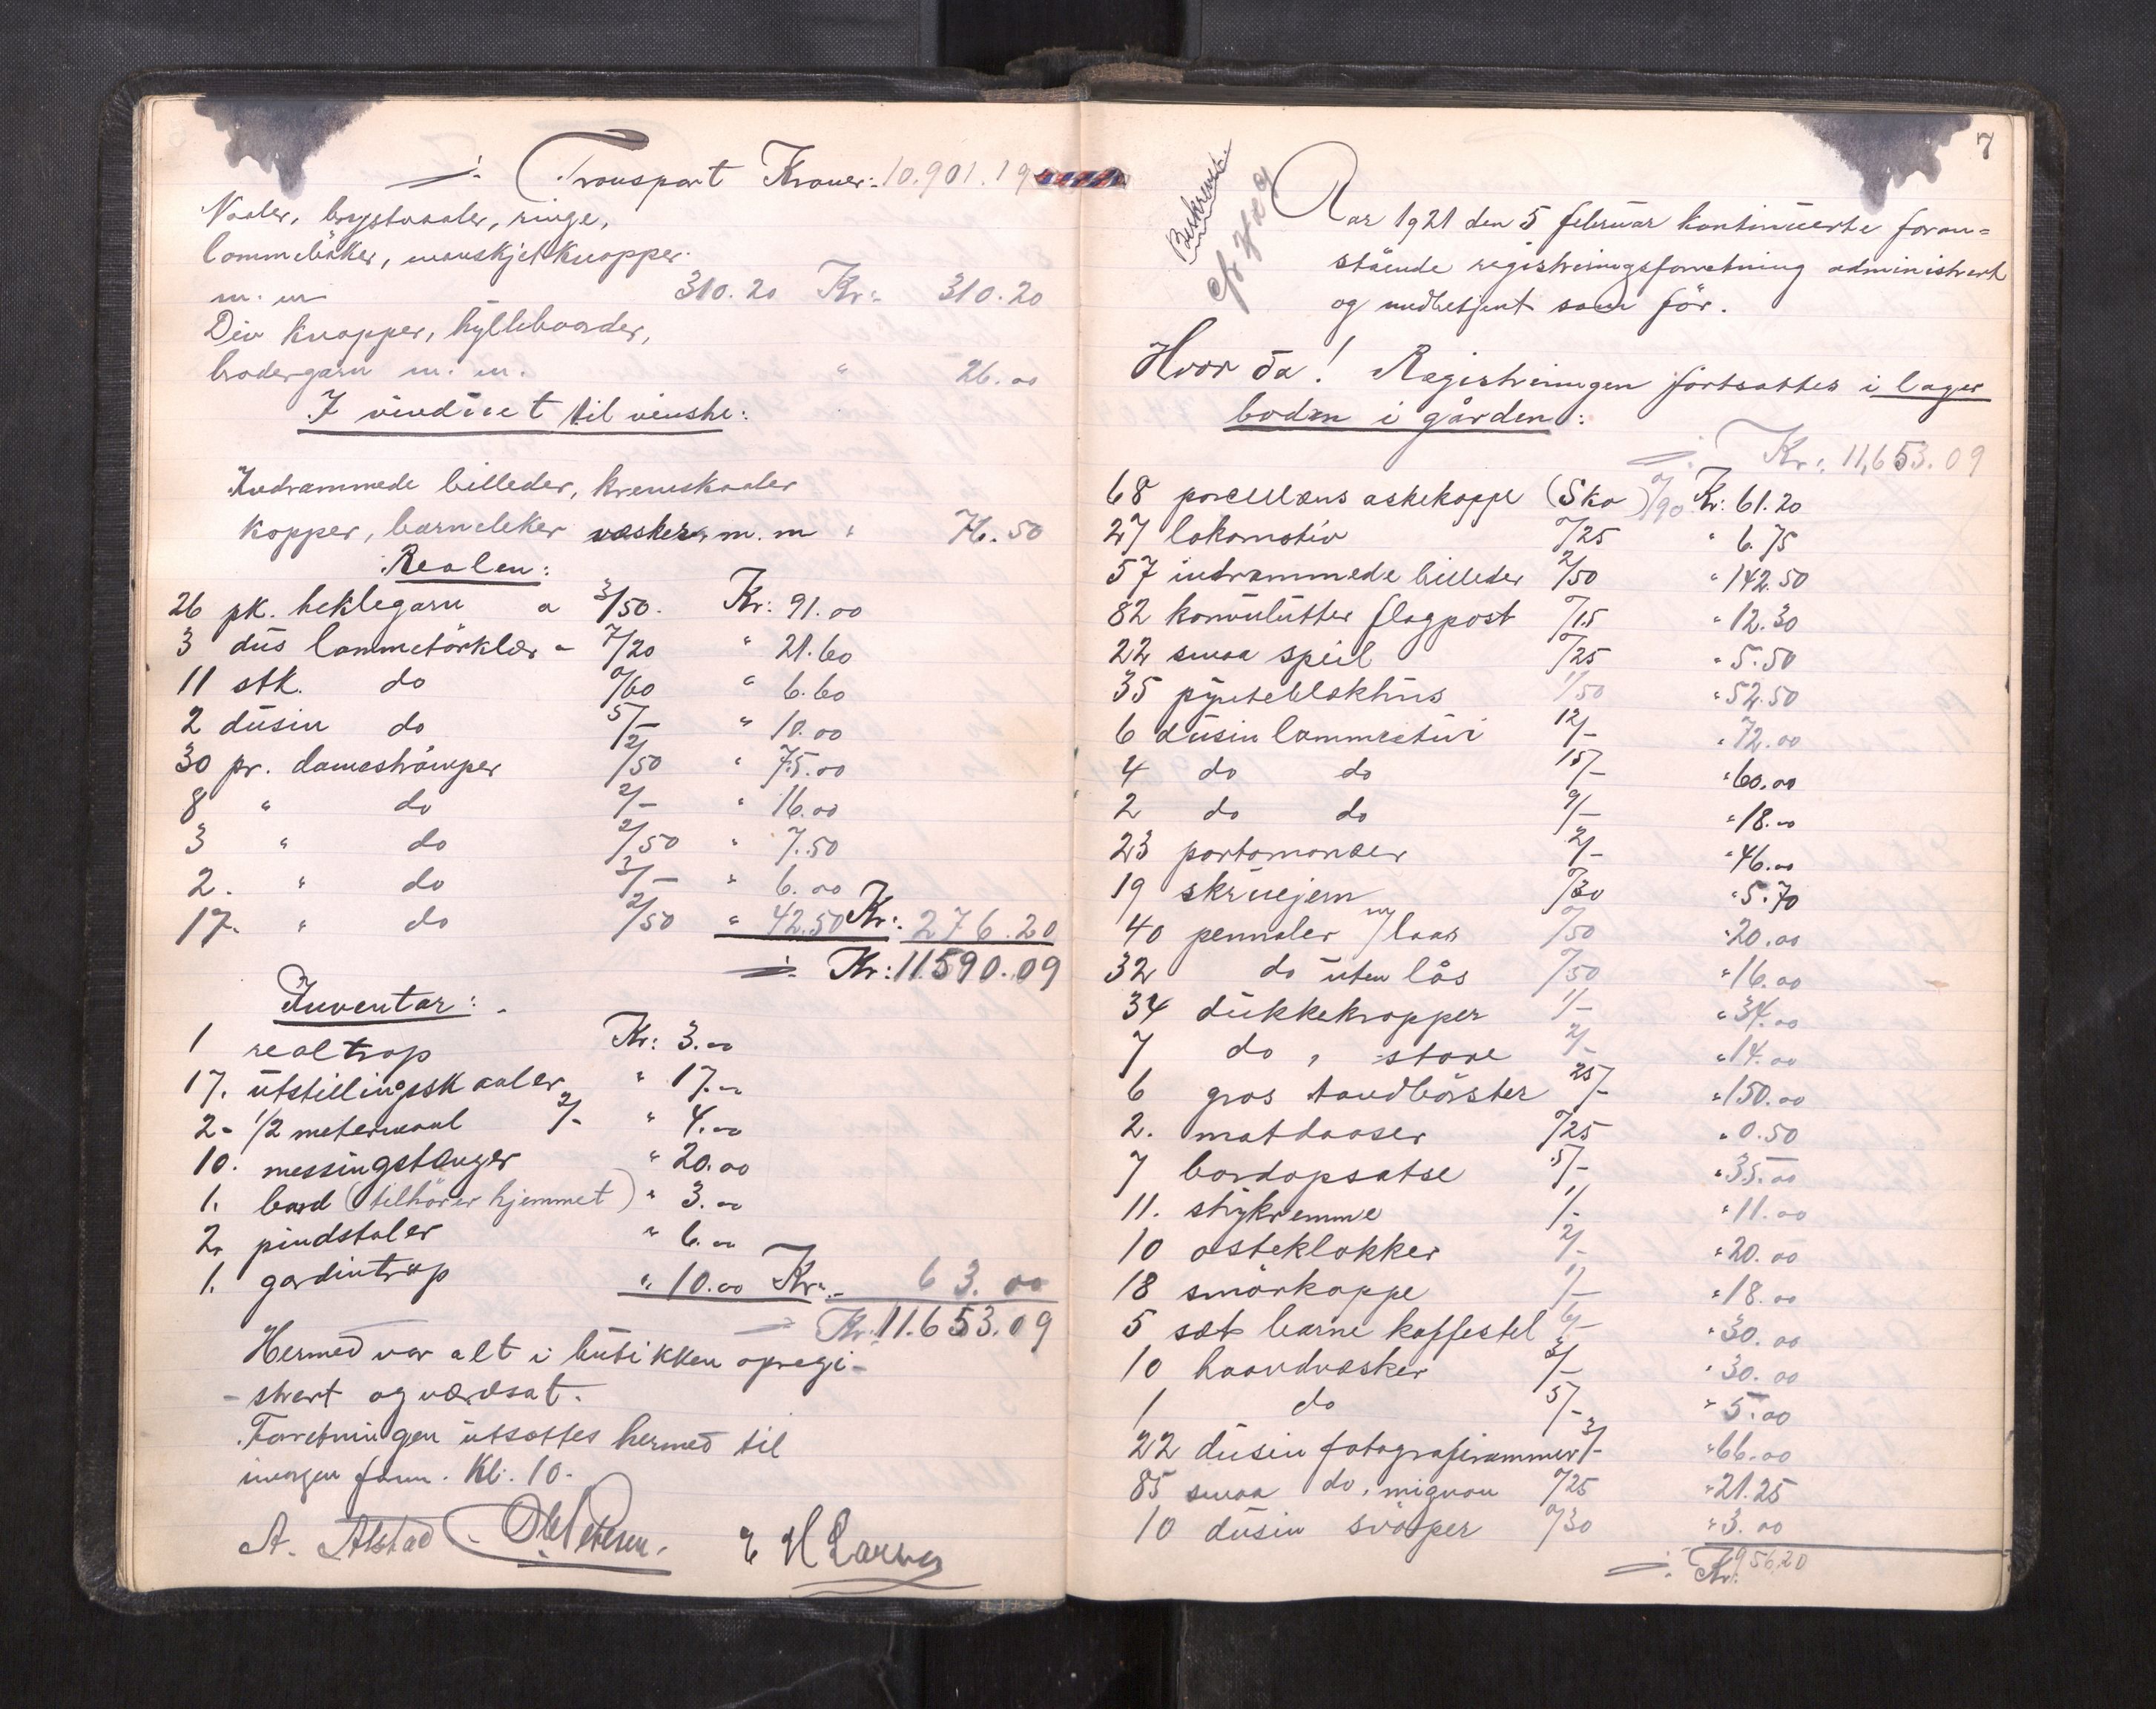 Transport Kroner: 10.901.19
Naaler, brystnaaler, ringe,
lommebøker, manskjetknapper
m. m 310.20 Kr: 310.20
Div knapper, hylleborder,
brodergarn m. m. " 26.00
I vinduet til venstre:
Indrammede billeder, kremskaaler
kopper, barneleker væsker m. m " 76.50
Reolen:
26 pk. heklegarn a 3/50. Kr: 91.00
3 dus lommetörklær - 7/20 " 21.60
11 stk. do 0/60 " 6.60
2 dusin do 5/- " 10.00
30 pr. dameströmper 2/50 " 75.00
8 " do 2/- " 16.00
3 " do 2/50 " 7.50
2. " do 3/- " 6.00
17. " do 2/50 " 42.50 Kr: 276.20
Kr: 11.590.09
Inventar:
1 realtrap Kr: 3.00
17. utstillingsskaaler " 17.00
2- 1/2 metermaal 2/- " 4.00
10. messingstænger " 20.00
1. bord (tilhörer hjemmet) " 3.00
2. pindstoler " 6.00
1. gardintrap " 10.00 Kr: 63.00
Kr: 11.653.09
Hermed var alt i butikken opregi-
- strert og værdsat.
Forretningen utsattes hermed til
imorgen form. Kl. 10.
A. Alstad Ole Petersen. H Larsen
7
Beskrevet
Aar 1921 den 5 februar kontinuerte foran=
stående registreringsforretning administrert
og medbetjent som för.
Hvor da! Registreringen fortsattes i lager
boden i gården:
Kr: 11,653.09
68 porcellæns askekoppe (Sko) 0/90 Kr: 61.20
27 lokomotiv 0/25 " 6.75
57 indrammede billeder 2/50 " 142.50
82 konvolutter flagpost 0/15 " 12.30
22 smaa speil 0/25 " 5.50
35 pynteblækhus 1/50 " 52.50
6 dusin lommeetui 12/- " 72.00
4 do do 15/- " 60.00
2 do do 9/- " 18.00
23 portomonæer 2/- " 46.00
19 skruejern 0/30 " 5.70
40 pennaler m/laas 0/50 " 20.00
32 do uten lås 0/50 " 16.00
34 dukkekropper 1/- " 34.00
7 do, store 2/- " 14.00
6 gros tandbörster 25/- " 150.00
2. matdaaser 0/25 " 0.50
7 bordopsatse 5/- " 35.00
11. strykremme 1/- " 11.00
10 osteklokker 2/- " 20.00
18 smörkoppe 1/- " 18.00
5 sæt barne kaffestel 6/- " 30.00
10 haandvæsker 3/- " 30.00
1 do 5/- " 5.00
22 dusin fotografirammer 3/- " 66.00
85 smaa do, mignon 0/25 " 21.25
10 dusin svöper 0/30 " 3.00
Kr: 956,20